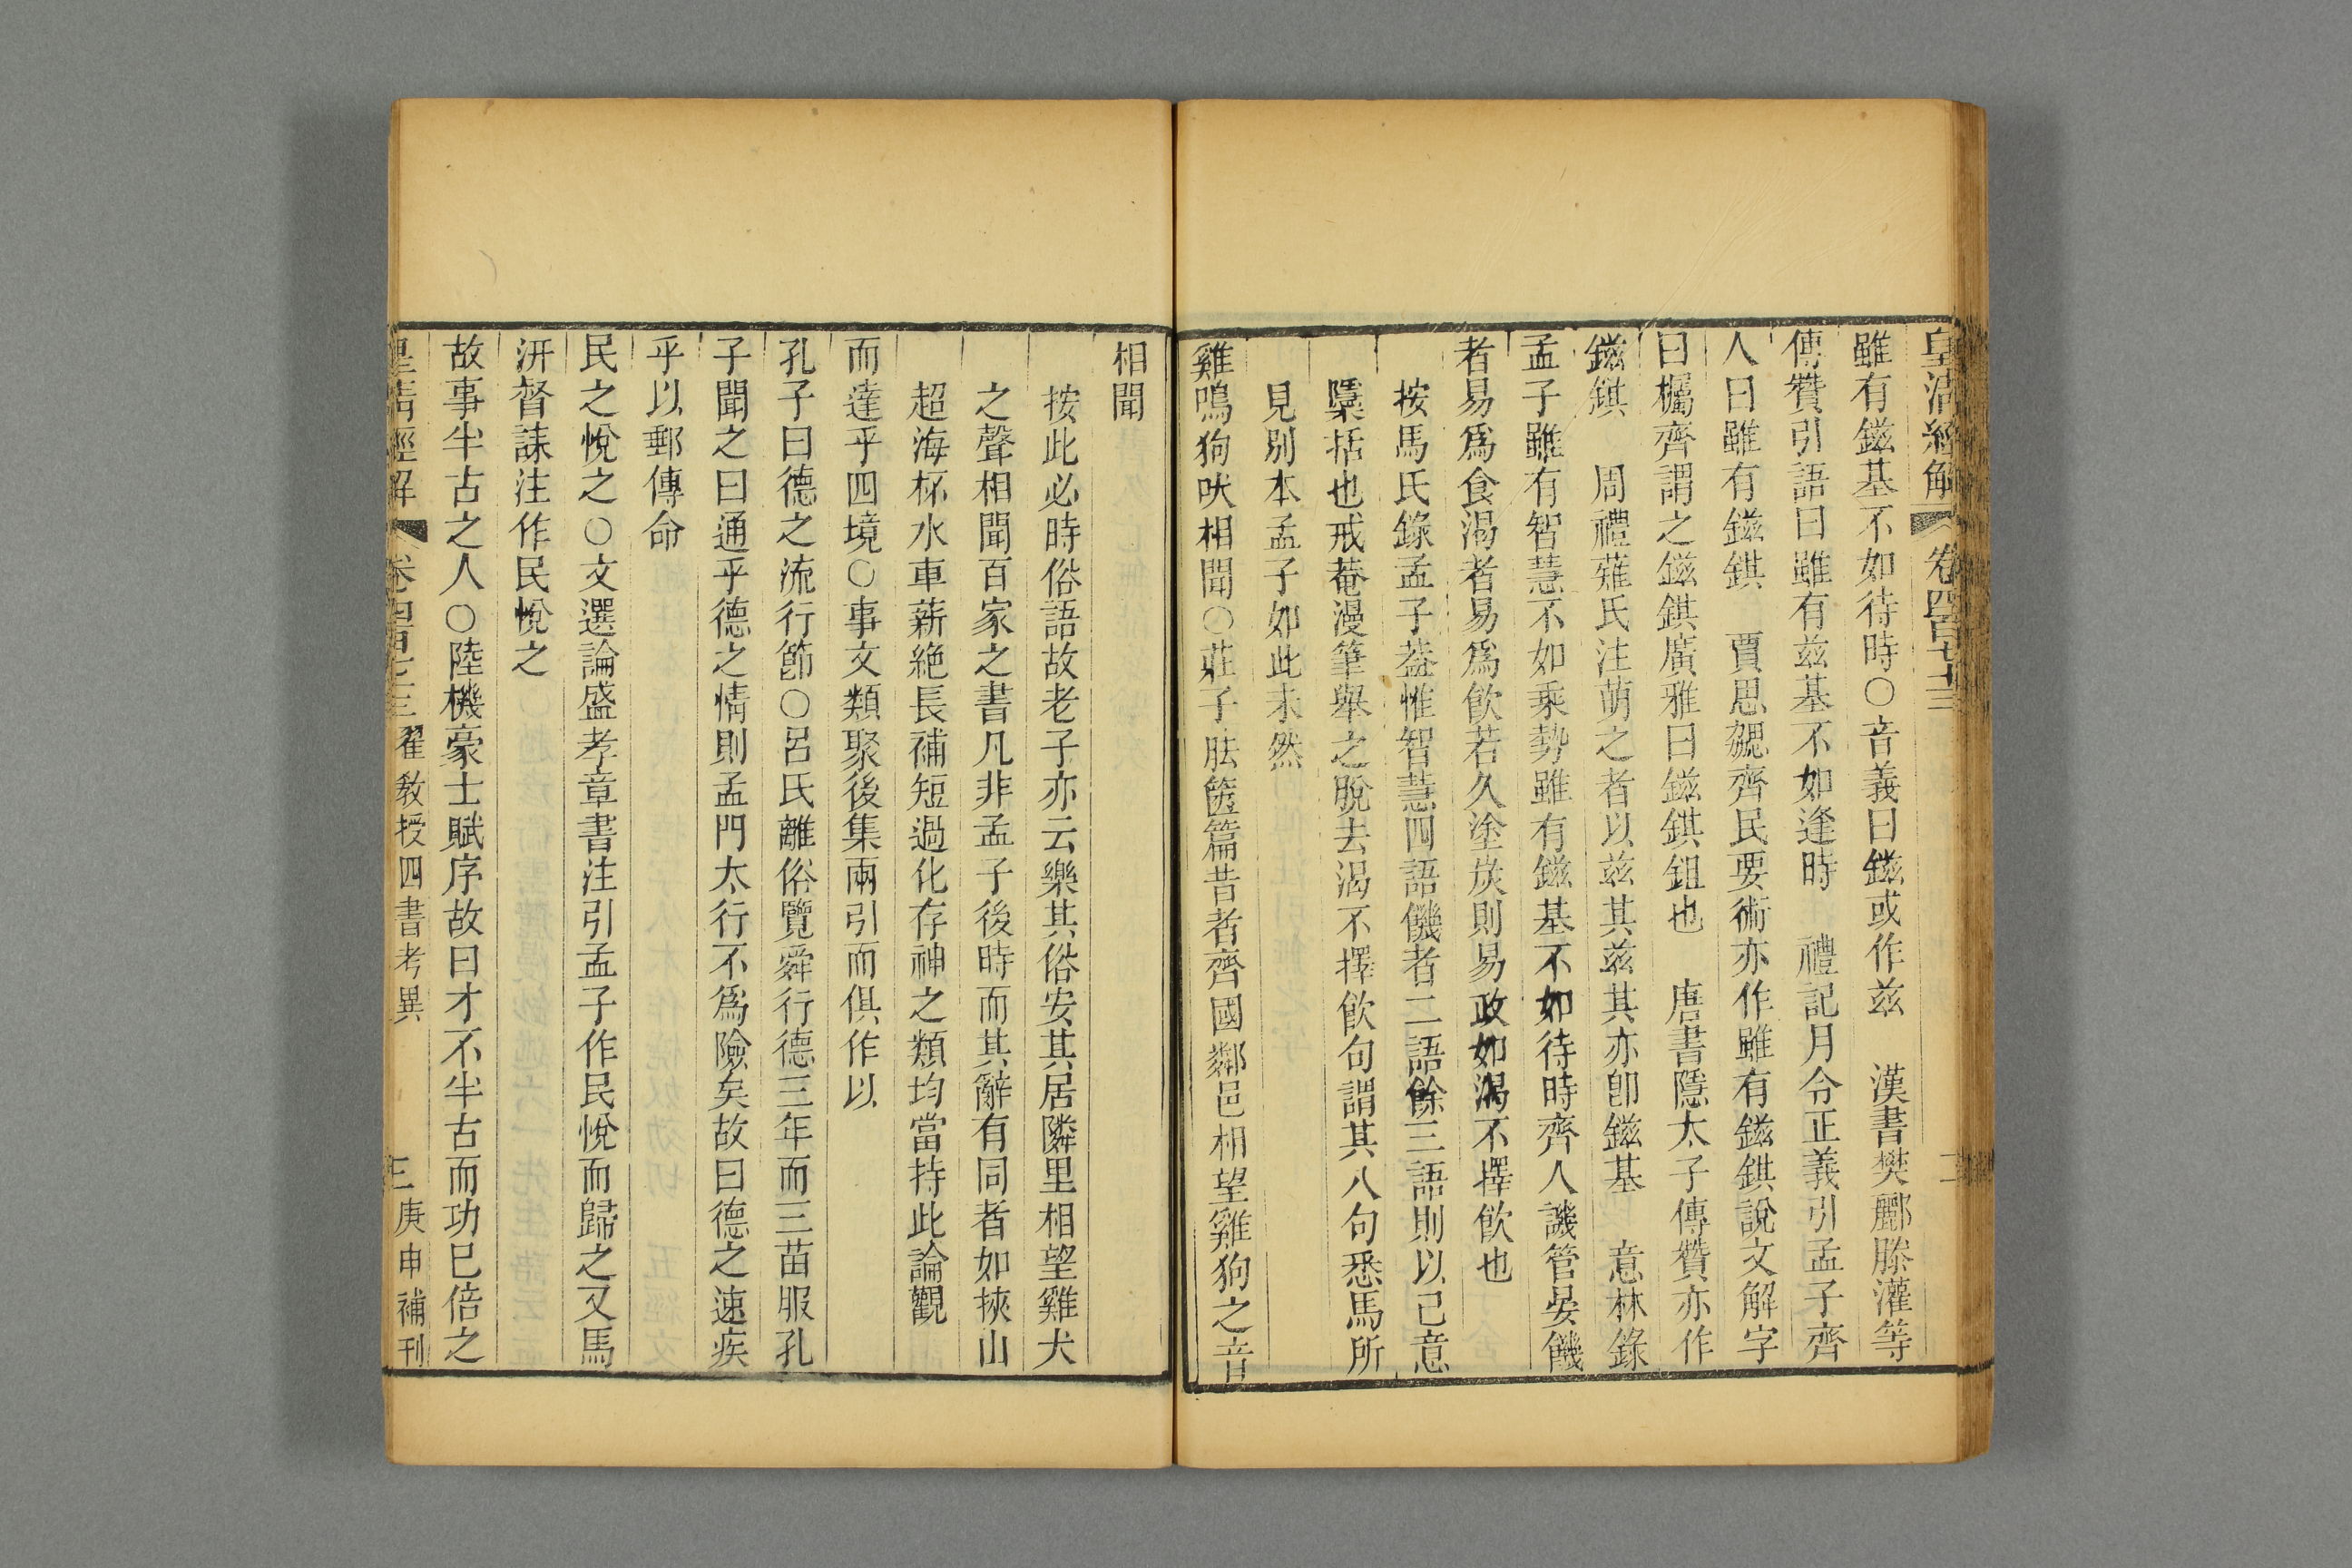 皇清經解 卷四百七十三 二
雖有鎡基不如待時○音義曰鎡或作兹 漢書樊酈滕灌等
傳贊引語曰雖有兹基不如逢時 禮記月令正義引孟子齊
人曰雖有鎡錤 賈思勰齊民要術亦作雖有鎡錤說文解字
曰欘齊謂之鎡錤廣雅曰鎡錤鉏也 唐書隱太子傳贊亦作
鎡錤 周禮薙氏注萌之者以兹其兹其亦卽鎡基 意林錄
孟子雖有智慧不如乘勢雖有鎡基不如待時齊人譏管晏饑
者易爲食渴者易爲飮若久塗炭則易政如渴不擇飮也
按馬氏錄孟子葢惟智慧四語饑者二語餘三語則以己意
檃括也戒菴漫筆舉之脫去渴不擇飮句謂其八句悉馬所
見別本孟子如此未然
雞鳴狗吠相聞○莊子胠篋篇昔者齊國鄰邑相望雞狗之音
相聞
按此必時俗語故老子亦云樂其俗安其居隣里相望雞犬
之聲相聞百家之書凡非孟子後時而其辭有同者如挾山
超海杯水車薪絶長補短過化存神之類均當持此論觀
而達乎四境○事文類聚後集兩引而俱作以
孔子曰德之流行節○呂氏離俗覽舜行德三年而三苗服孔
子聞之曰通乎德之情則孟門太行不爲險矣故曰德之速疾
乎以郵傳命
民之悅之○文選論盛孝章書注引孟子作民悅而歸之又馬
汧督誄注作民悅之
故事半古之人○陸機豪士賦序故曰才不半古而功已倍之
皇清經解 卷四百七十三 翟教授四書考異 三 庚申補刊